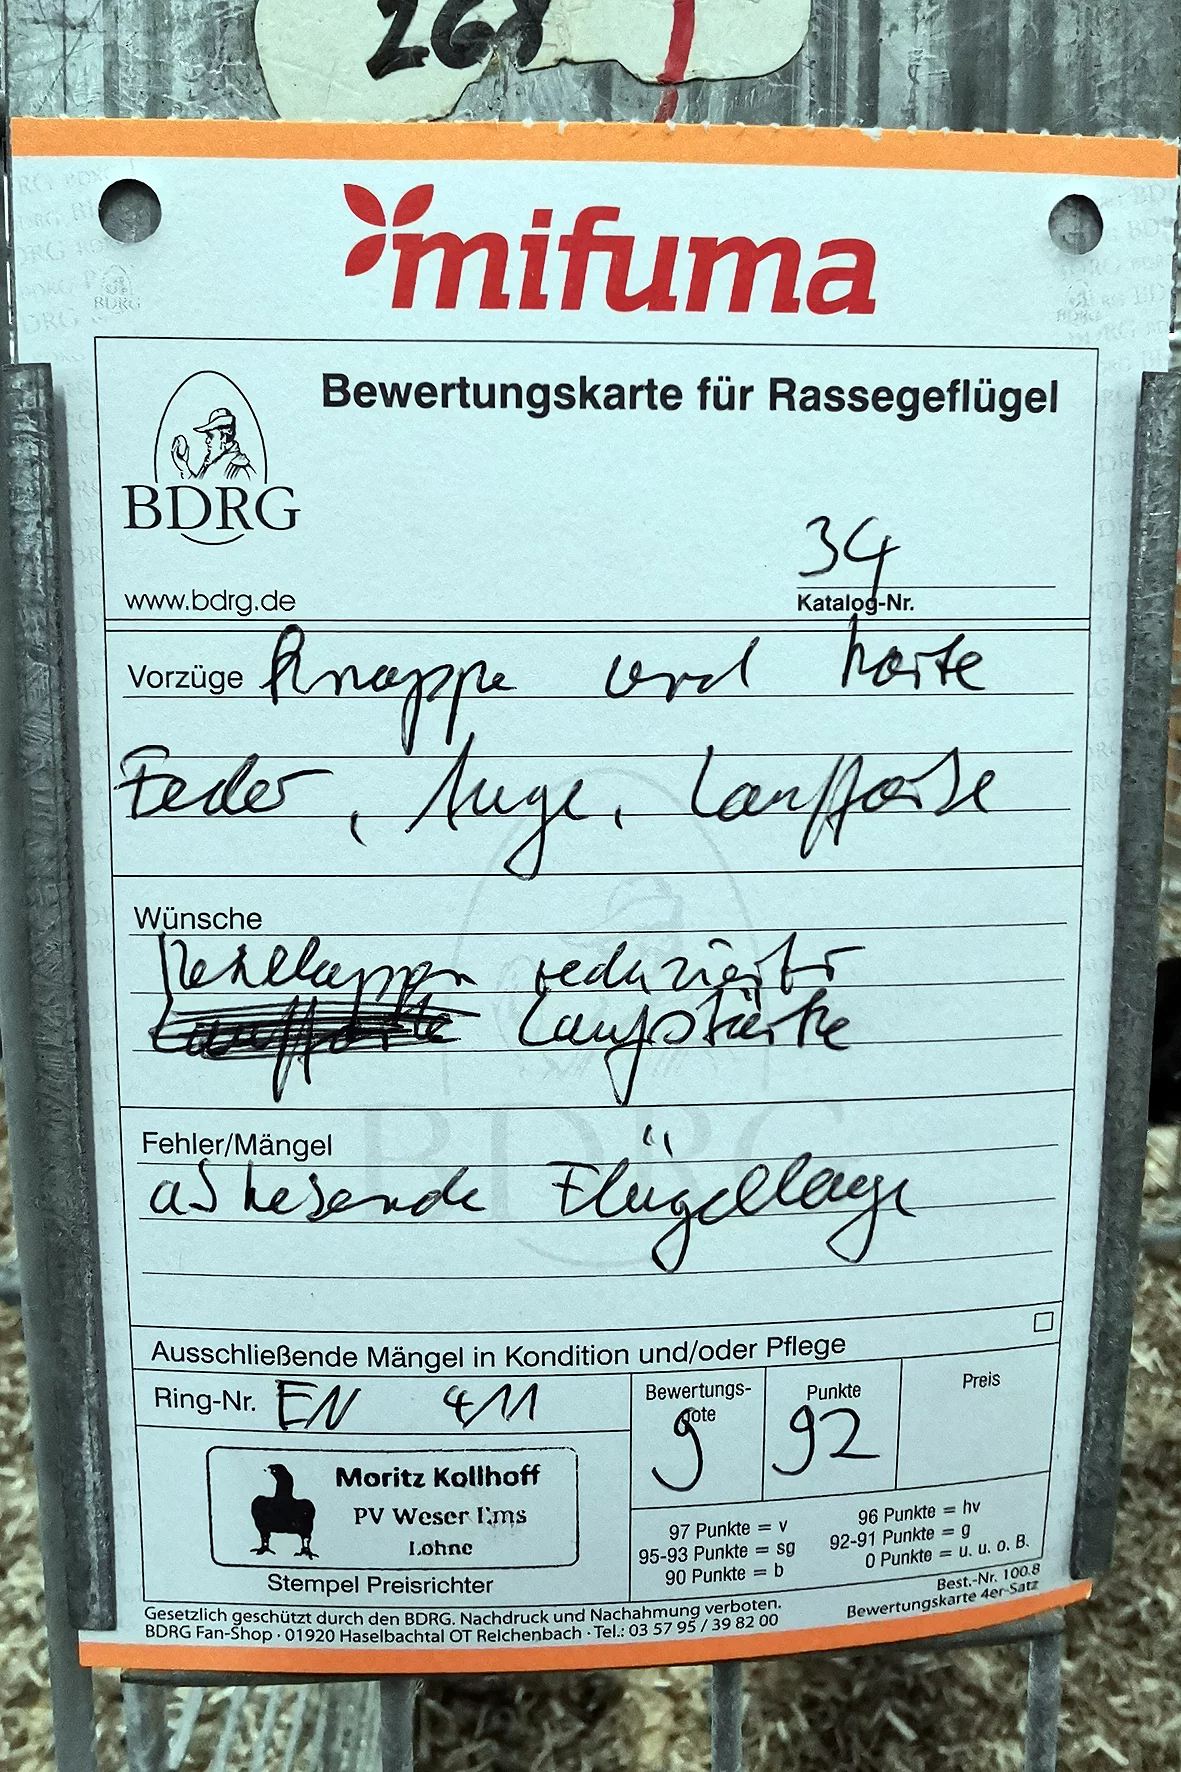 268
mifuma
Bewertungskarte für Rassegeflügel
BDRG
www.bdrg.de
34
Katalog-Nr.
Vorzüge Knappe und harte
Feder, Auge, Lauffarbe
Wünsche
Kehllappen reduzierter
Laufstärke
Fehler/Mängel
abhebende Flügellage
Ausschließende Mängel in Kondition und/oder Pflege
Ring-Nr. EN 411
Bewertungs-
note
g
Punkte
92
Preis
Moritz Kollhoff
PV Weser Ems
Lohne
Stempel Preisrichter
97 Punkte = v
95-93 Punkte = sg
90 Punkte = b
96 Punkte = hv
92-91 Punkte = g
0 Punkte = u. u. o. B.
Gesetzlich geschützt durch den BDRG. Nachdruck und Nachahmung verboten.
BDRG Fan-Shop · 01920 Haselbachtal OT Reichenbach · Tel.: 03 57 95 / 39 82 00
Best.-Nr. 100.8
Bewertungskarte 4er-Satz